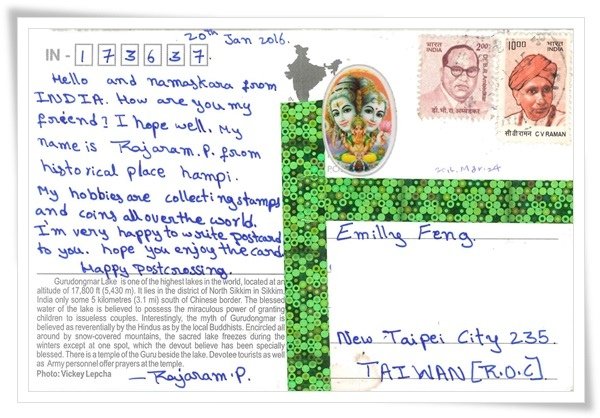 20th Jan 2016.
IN - 173637.
Hello and namaskara from
INDIA. How are you my
friend? I hope well. My
name is Rajaram.P. from
historical place hampi.
My hobbies are collecting stamps
and coins all over the world.
I'm very happy to write postcard
to you. hope you enjoy the card
Happy Postcrossing.
Gurudongmar Lake is one of the highest lakes in the world, located at an
altitude of 17,800 ft (5,430 m). It lies in the district of North Sikkim in Sikkim,
India only some 5 kilometres (3.1 mi) south of Chinese border. The blessed
water of the lake is believed to possess the miraculous power of granting
children to issueless couples. Interestingly, the myth of Gurudongmar is
believed as reverentially by the Hindus as by the local Buddhists. Encircled all
around by snow-covered mountains, the sacred lake freezes during the
winters except at one spot, which the devout believe has been specially
blessed. There is a temple of the Guru beside the lake. Devotee tourists as well
as Army personnel offer prayers at the temple.
Photo: Vickey Lepcha
—Rajaram.P.
भारत
INDIA
2.00
डॉ. भी. रा. अम्बेडकर
10.00
भारत
INDIA
सी वी रामन C V RAMAN
2016. Mar. 24
Emilly Feng.
New Taipei City 235.
TAIWAN [R.O.C]